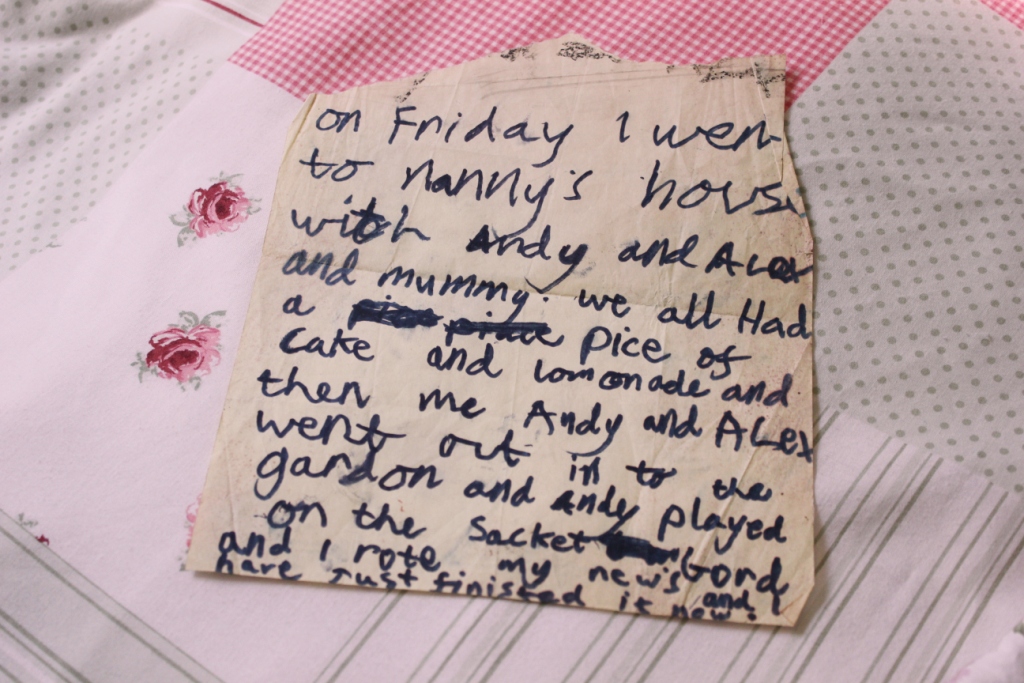 on Friday I wen
to nanny's hous
with Andy and ALex
and mummy. we all Had
a pice of
cake and lomonade and
then me Andy and ALex
went out in to the
gardon and Andy played
on the Sacket Bord
and I rote my news and I
have Just finished it now.